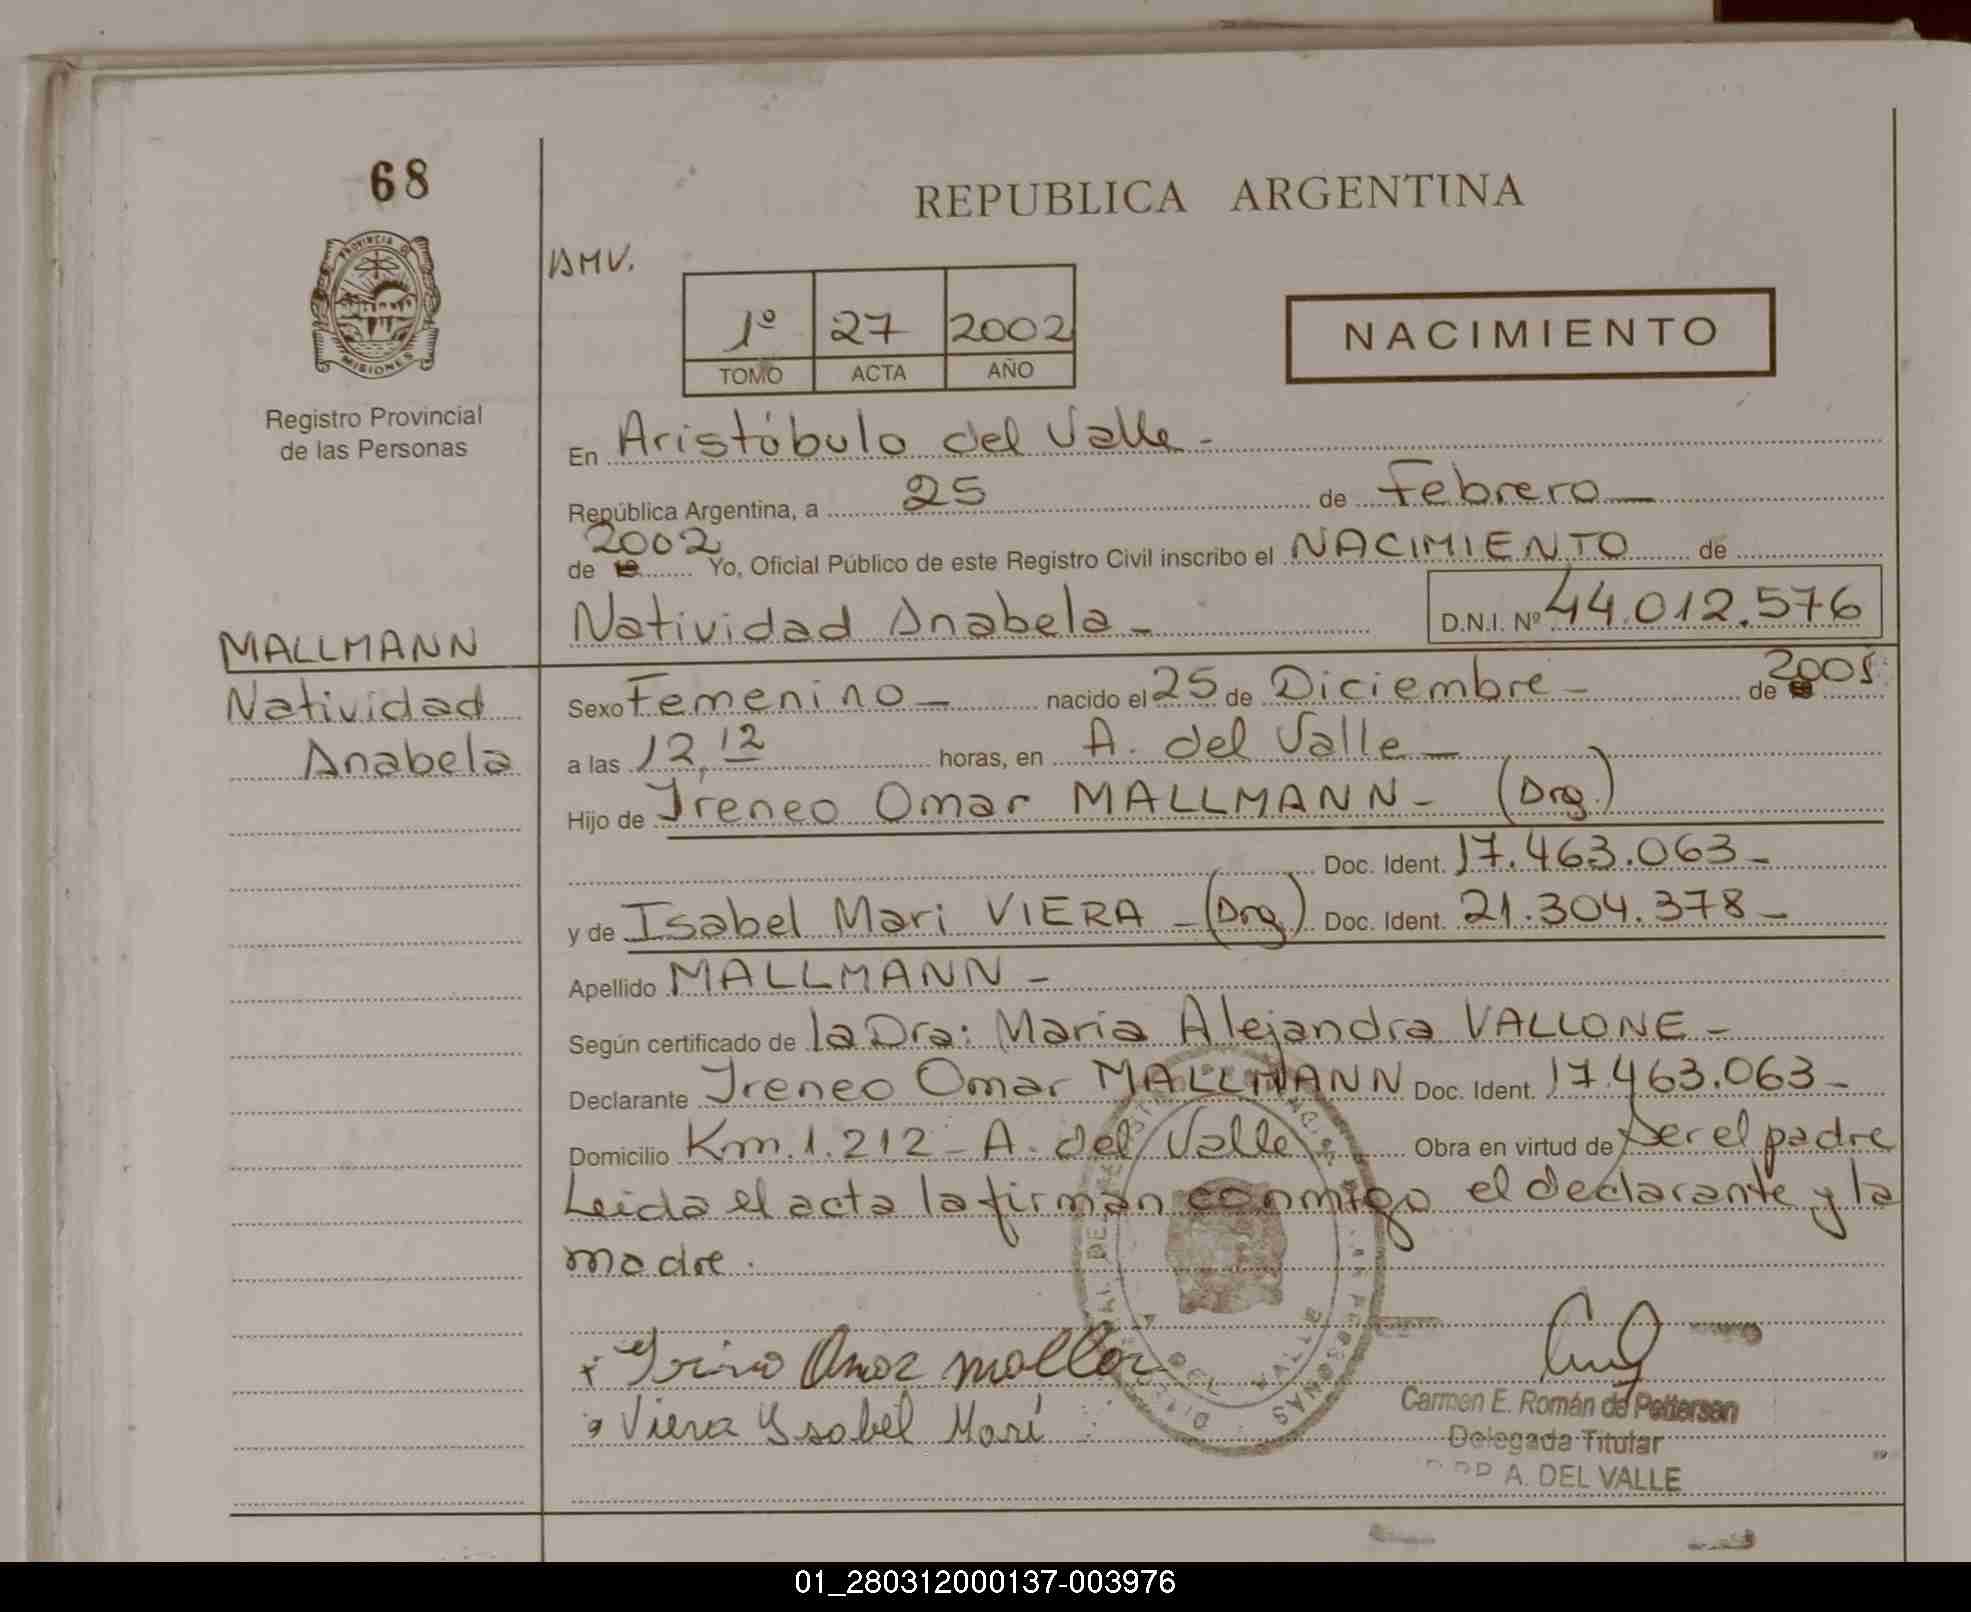 68
REPUBLICA ARGENTINA
PROVINCIA DE MISIONES
Registro Provincial
de las Personas
AMV.
1º 27 2002
TOMO ACTA AÑO
NACIMIENTO
En Aristóbulo del Valle -
República Argentina, a 25 de Febrero
de 2002 Yo, Oficial Público de este Registro Civil inscribo el NACIMIENTO de
Natividad Anabela - D.N.I. Nº 44.012.576
MALLMANN
Natividad
Anabela
Sexo Femenino - nacido el 25 de Diciembre - de 2001
a las 12,12 horas, en A. del Valle -
Hijo de Ireneo Omar MALLMANN - (Arg.)
Doc. Ident. 17.463.063 -
y de Isabel Mari VIERA - (Arg) Doc. Ident. 21.304.378 -
Apellido MALLMANN -
Según certificado de la Dra: Maria Alejandra VALLONE -
Declarante Ireneo Omar MALLMANN Doc. Ident. 17.463.063 -
Domicilio Km. 1.212 - A. del Valle Obra en virtud de ser el padre
Leida el acta la firman conmigo el declarante y la
madre.
Viera Ysabel Mari
Carmen E. Román de Pettersen
Delegada Titular
A. DEL VALLE
DEL VALLE
01_280312000137-003976